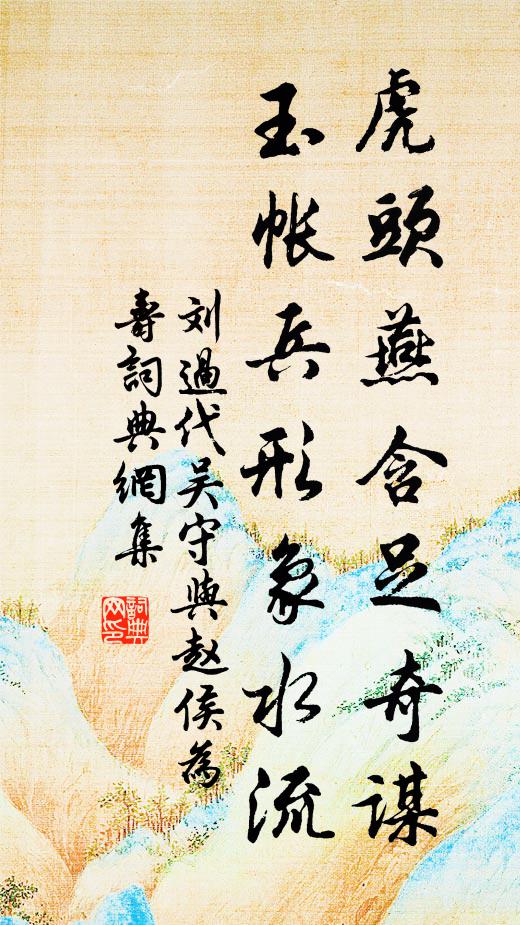 虎頭燕含足奇謀
玉帐兵形象水流
刘過代吴守與赵侯為
壽詞典網集
詞典
网印